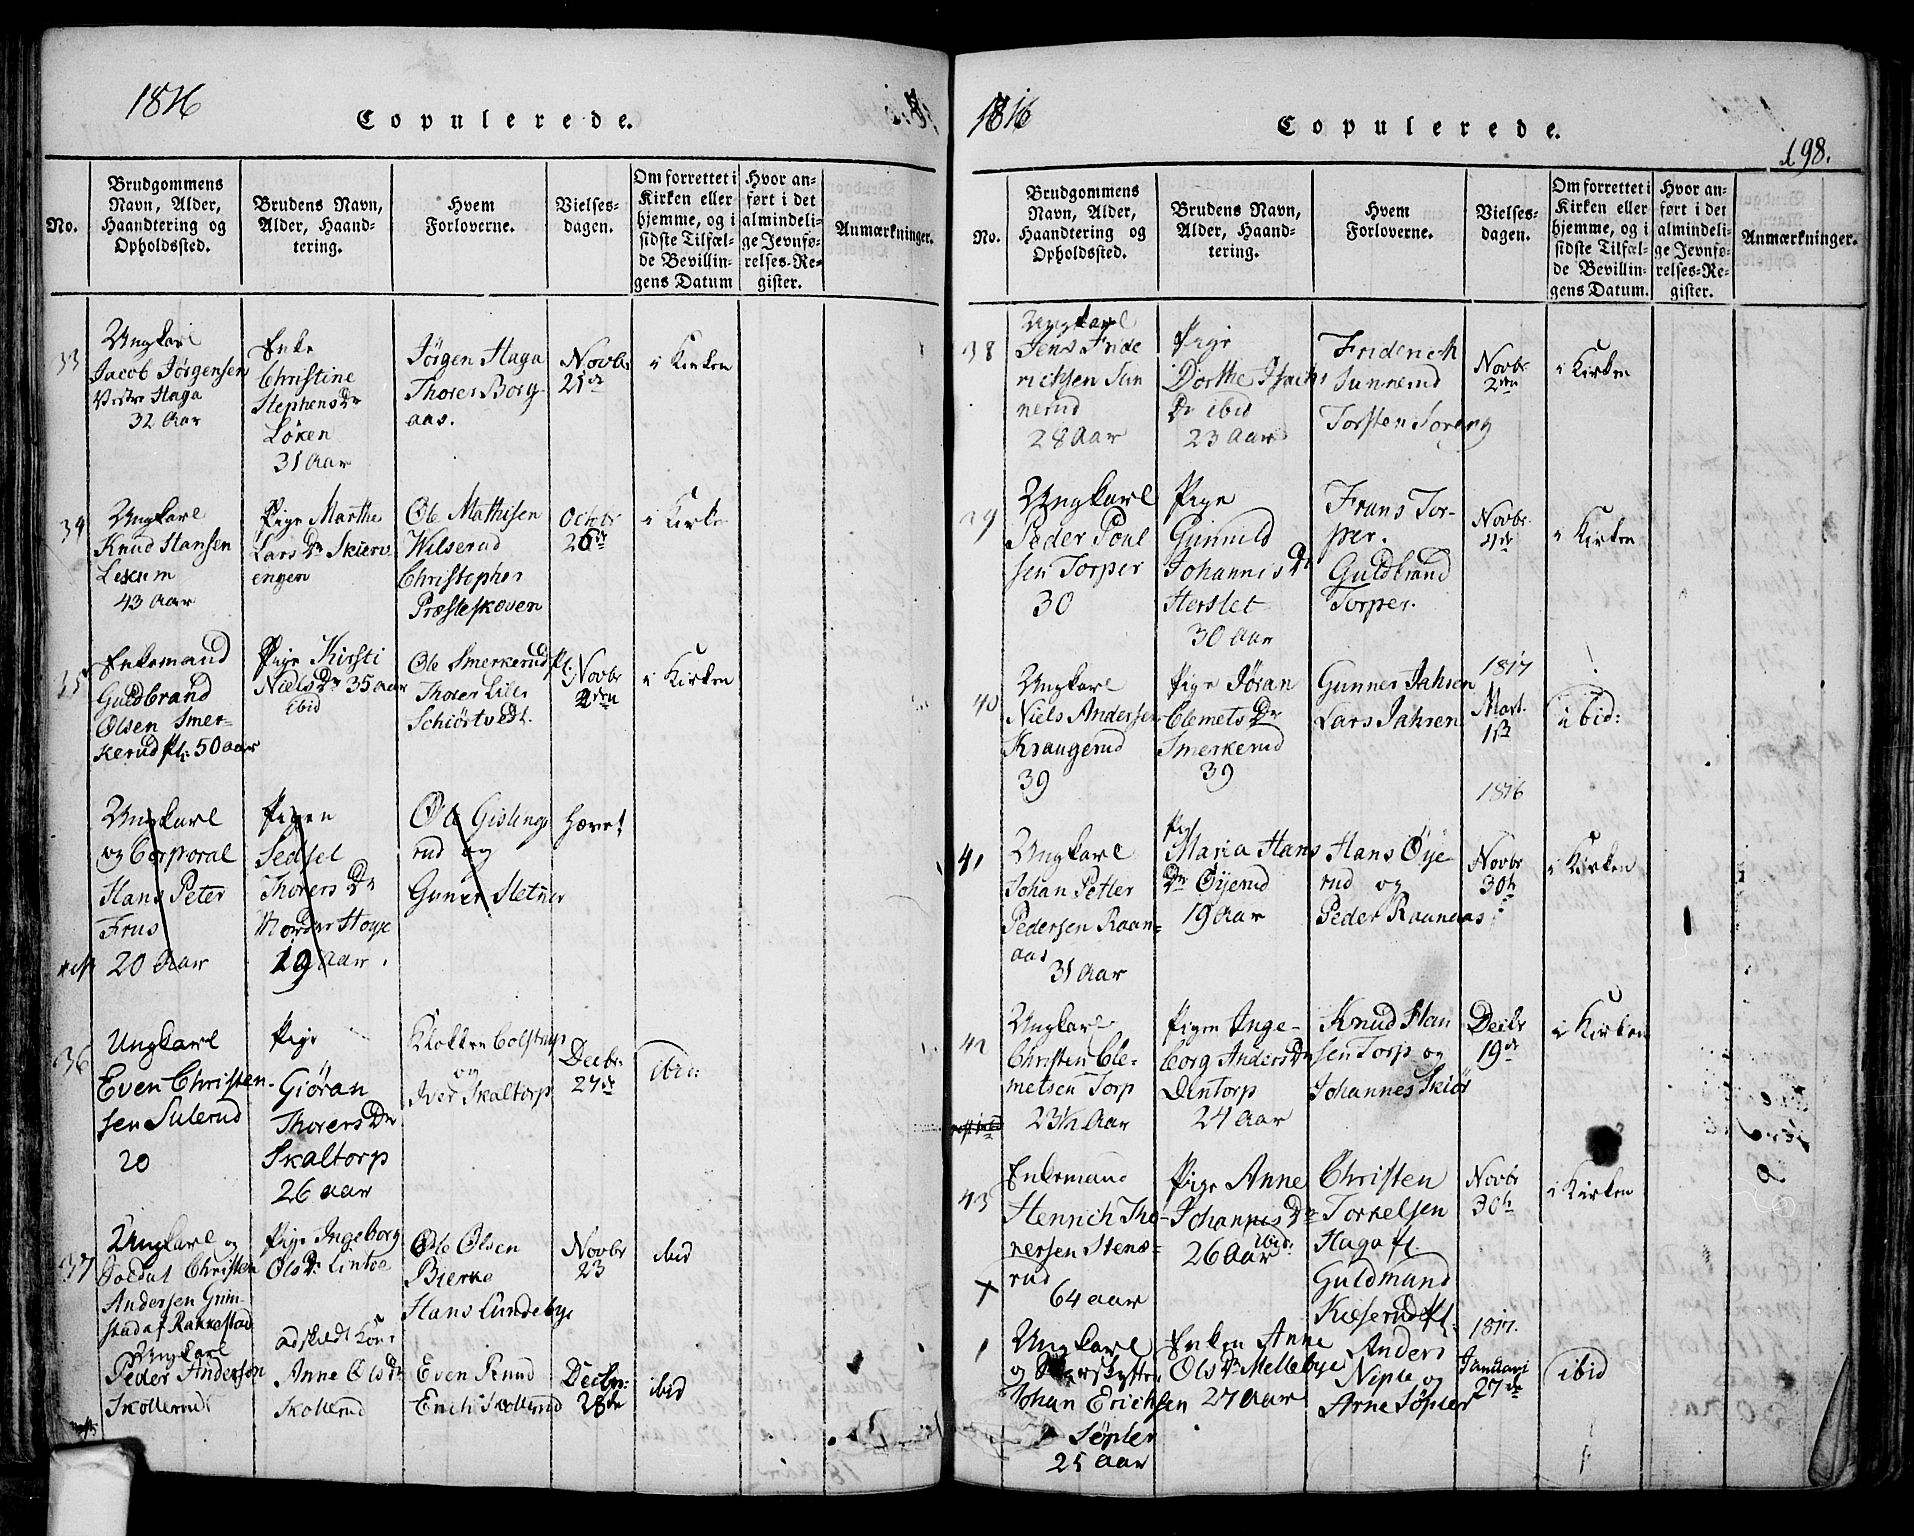 1816
Copulerede.
No.
Brudgommens
Navn, Alder,
Haandtering og
Opholdssted.
Brudens Navn,
Alder, Haand-
tering.
Hvem
Forloverne.
Vielses-
dagen.
Om forrettet i
Kirken eller
hjemme, og i
sidste Tilfæl-
de Bevillin-
gens Datum
Hvor an-
ført i det
almindeli-
ge Jevnfø-
relses-Re-
gister.
Anmærkninger.
33
Ungkarl
Jacob Jørgensen
Vestre Haga
32 Aar
Enke
Christine
Stephens Dr
Løken
31 Aar
Jørgen Haga
Thorer Borg-
aas.
Novbr
21de
i Kirken
34
Ungkarl
Knud Hansen
Lexum
43 Aar
Pige Marthe
Lars Dr Skierv
engen
Ole Mathisen
Wilserud
Christopher
Præsteskoven
Octobr
26de
i Kirke
35
Enkemand
Guldbrand
Olsen Smer-
kerud pl. 50 aar
Pige Kirsti
Niels Dr 35 aar
ibid
Ole Smerkerud pl.
Thorer Lille
Schiørtvedt.
Novbr
2den
i Kirken
Ungkarl
og Corporal
Hans Peter
Frus
20 Aar
Pigen
Sedsel
Thorers Dr
19 Aar.
Ole Gislings
rud og
Guner Sletner
Hævet
36
Ungkarl
Even Christen-
sen Sulerud
20
Pige
Giøran
Thorers Dr
Skaltorp
26 aar
Klokker Colstrup
og
Iver Skaltorp
Decbr
27de
ibid
37
Ungkarl og
Soldat Christen
Andersen Grim-
stad af Rakkestad
Pige Ingeborg
Ols Dr Lintoe
Ole Olsen
Bierke
Hans Lundebye
Novbr
23
ibid
Ungkarl
Peder Andersen
Skollerud
adskildt Kone
Anne Ols Dr
Skollerud
Even Ruud
Erich Skollerud
Decbr:
28de
ibid
1816
Copulerede.
198.
No.
Brudgommens
Navn, Alder,
Haandtering og
Opholdssted.
Brudens Navn,
Alder, Haand-
tering.
Hvem
Forloverne.
Vielses-
dagen.
Om forrettet i
Kirken eller
hjemme, og i
sidste Tilfæl-
de Bevillin-
gens Datum.
Hvor an-
ført i det
almindeli-
ge Jevnfø-
relses-Re-
gister.
Anmærkninger.
38
Ungkarl
Jens Fride
richsen Sun
nerud
28 Aar
Pige
Dorthe Isachs
Dr ibid
23 Aar
Friderich
Sunnerud
Torsten Toreng
Novbr
2den
i Kirken
39
Ungkarl
Peder Poul
sen Torper
30
Pige
Gunnild
Johannis Dr
Herslet
30 Aar
Frans Tor-
per.
Guldbrand
Torper.
Novbr.
i Kirken
40
Ungkarl
Niels Andersen
Krangerud
39
Pige Jøran
Clemets Dr
Smerkerud
39
Gunner Jahren
Lars Jahren
1817
Mart.
1ste
ibid:
1816
41
Ungkarl
Johan Petter
Pedersen Raan-
aas
31 Aar
Pige
Maria Hans
Dr Øyerud
19 Aar
Hans Øye-
rud og
Peder Raanaas
Novbr
30te
i Kirken
42
Ungkarl
Christen Cle-
metsen Torp
23½ Aar
Pigen Inge-
borg Anders Dr
Dentorp
24 Aar
Knud Han
sen Torp og
Johannes Skiør
Decbr
19de
i Kirken
43
Enkemand
Henrich Tho-
rersen Stens-
rud
64 aar
Pige Anne
Johannes Dr
ibid:
26 Aar
Christen
Torkelsen
Haga pl
Guldmund
Kieserud pl.
Novbr
30te
i Kirken
1
Ungkarl
og Skarpskytter
Johan Erichsen
Søpler
25 Aar
Enken Anne
Ols Dr Mellebye
27 Aar
Anders
Niple og
Arne Søpler
1817.
Januari
27de
ibid